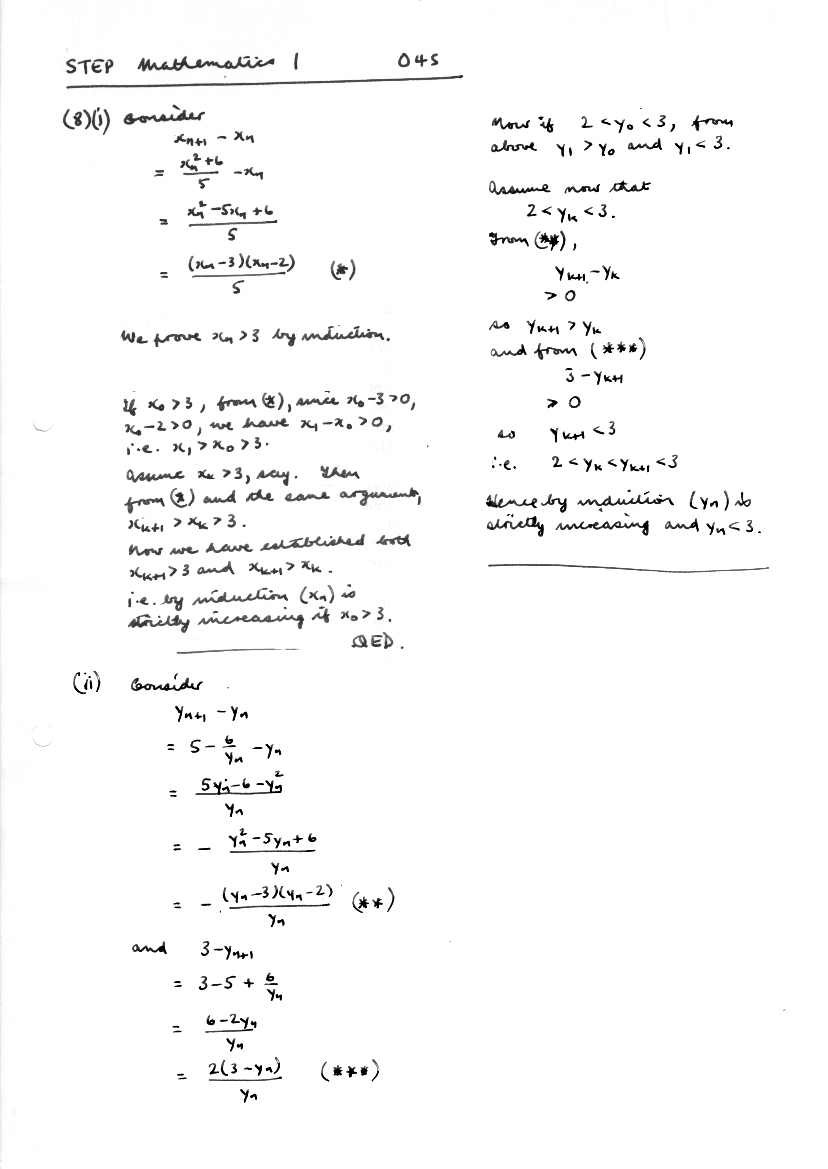 STEP Mathematics 1 04S
(8)(i) Consider
xₙ₊₁ - xₙ
= (xₙ² + 6)/5 - xₙ
= (xₙ² - 5xₙ + 6)/5
= (xₙ - 3)(xₙ - 2)/5 (*)
We prove xₙ > 3 by induction.
If x₀ > 3, from (*), since x₀ - 3 > 0,
x₀ - 2 > 0, we have x₁ - x₀ > 0,
i.e. x₁ > x₀ > 3.
Assume xₖ > 3, say. Then
from (*) and the same argument,
xₖ₊₁ > xₖ > 3.
Now we have established both
xₖ₊₁ > 3 and xₖ₊₁ > xₖ.
i.e. by induction (xₙ) is
strictly increasing if x₀ > 3.
QED.
(ii) Consider
yₙ₊₁ - yₙ
= 5 - 6/yₙ - yₙ
= (5yₙ - 6 - yₙ²)/yₙ
= - (yₙ² - 5yₙ + 6)/yₙ
= - (yₙ - 3)(yₙ - 2)/yₙ (**)
and 3 - yₙ₊₁
= 3 - 5 + 6/yₙ
= (6 - 2yₙ)/yₙ
= 2(3 - yₙ)/yₙ (***)
Now if 2 < y₀ < 3, from
above y₁ > y₀ and y₁ < 3.
Assume now that
2 < yₖ < 3.
From (**),
yₖ₊₁ - yₖ
> 0
so yₖ₊₁ > yₖ
and from (***)
3 - yₖ₊₁
> 0
so yₖ₊₁ < 3
i.e. 2 < yₖ < yₖ₊₁ < 3
Hence by induction (yₙ) is
strictly increasing and yₙ < 3.